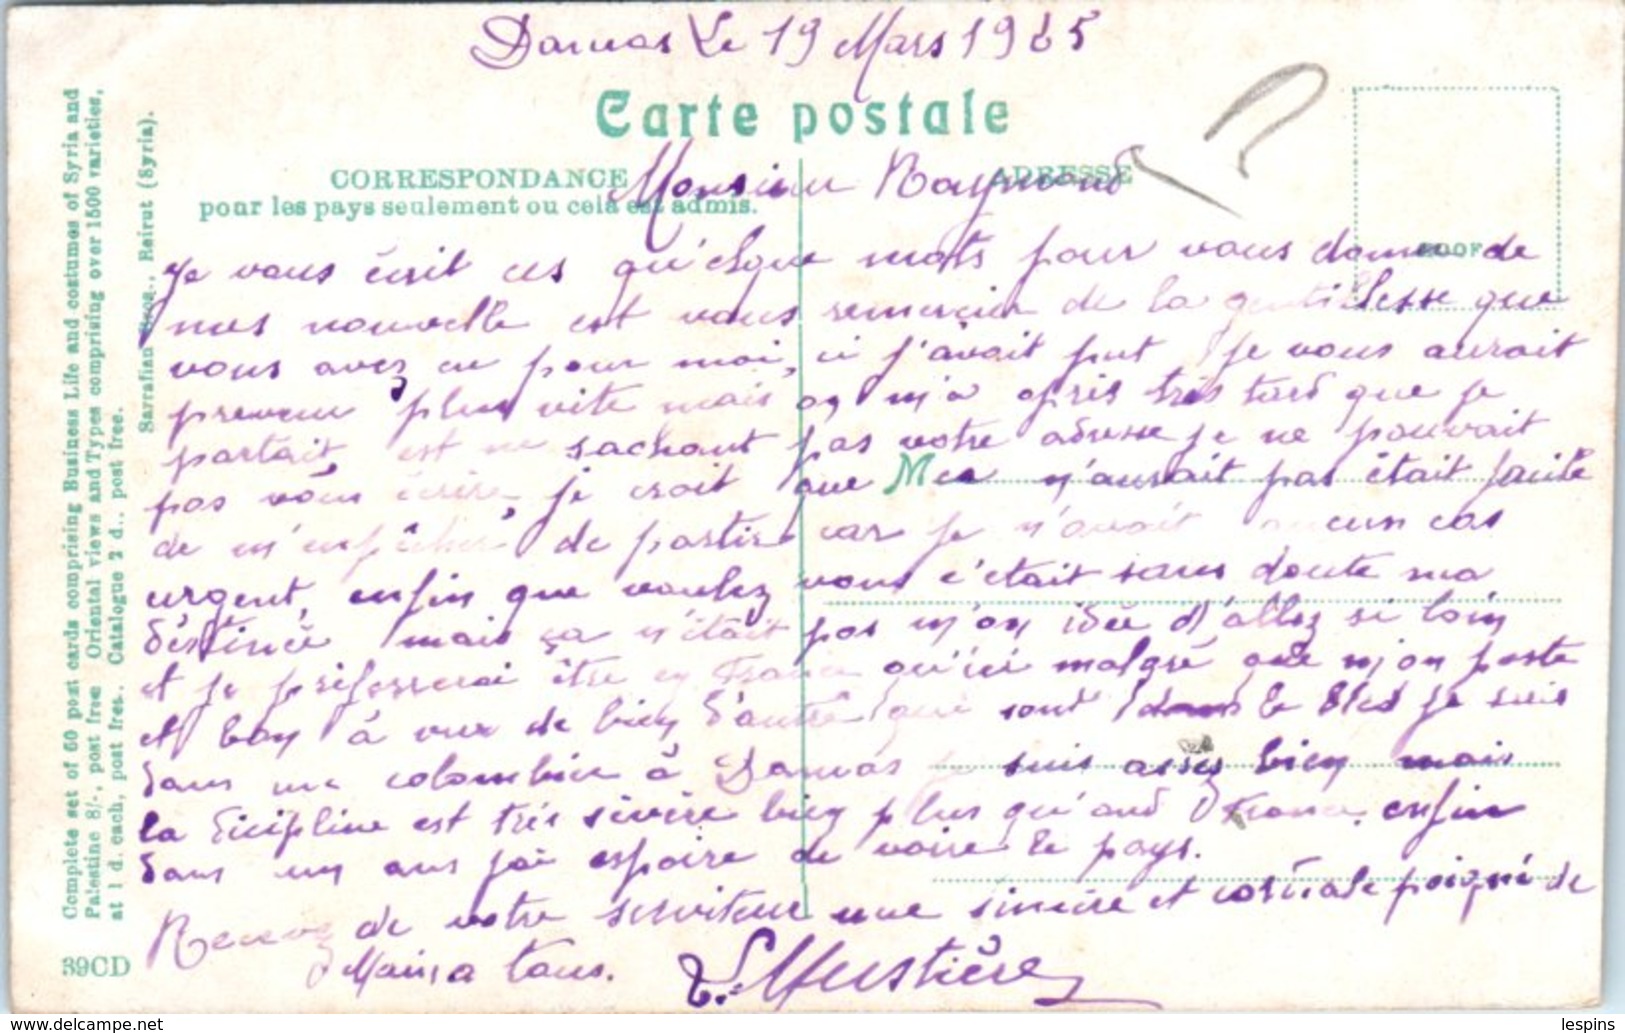 Damas le 19 Mars 1925
Carte postale
CORRESPONDANCE
pour les pays seulement ou cela est admis.
ADRESSE
Monsieur Raymond
Je vous écrit ces qu'elsque mots pour vous donner de
mes nouvelle est vous remercier de la gentillesse que
vous avez eu pour moi, si j'avait put je vous aurait
prevenu plus vite mais on m'a apris très tard que je
partait, est ne sachant pas votre adresse je ne pouvait
pas vous écrire, je croit que Mea n'aurait pas était faute
de m'empêcher de partir car je n'avait aucun cas
urgent, enfin que voulez vous c'était sans doute ma
déstinée mais ça n'était pas m'on idée d'allez si loin
et je préfererai être en France qu'ici malgré que m'on poste
et bon à vue de bien d'autre qui sont dans le bled je suis
dans une colombier à Damas je suis assez bien mais
la dicipline est très sévère bien plus qu'and France, enfin
dans un ans j'ai espoire de voire le pays.
Recevez de votre serviteur une sincère et cordiale poigné de
Mains a tous.
Complete set of 60 post cards comprising Business Life and costumes of Syria and
Palestine 8/-, post free Oriental views and Types comprising over 1500 varieties,
at 1 d. each, post free. Catalogue 2 d., post free.
Sarrafian Bros., Beirut (Syria).
39CD
lespins